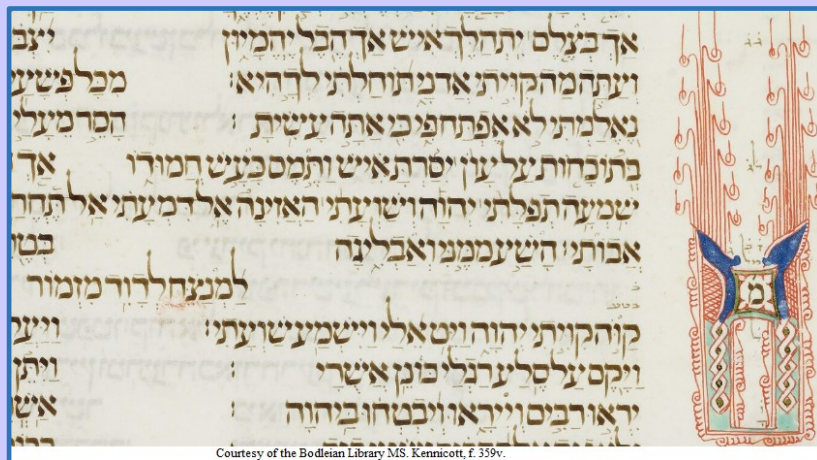 אך בצלם יתהלך איש אך הבל יהמיון יצב
ועתה מה קויתי אדני תוחלתי לך היא: מכל פשעי
נאלמתי לא אפתח פי כי אתה עשית: הסר מעלי
בתוכחות על עון יסרת איש ותמס כעש חמודו אך
שמעה תפלתי יהוה ושועתי האזינה אל דמעתי אל תחר
אבותי: השע ממני ואבליגה בט
למנצח לדוד מזמור
קוה קויתי יהוה ויט אלי וישמע שועתי: ויעל
ויקם על סלע רגלי כונן אשרי: ויתן
יראו רבים וייראו ויבטחו ביהוה אש
מ
Courtesy of the Bodleian Library MS. Kennicott, f. 359v.